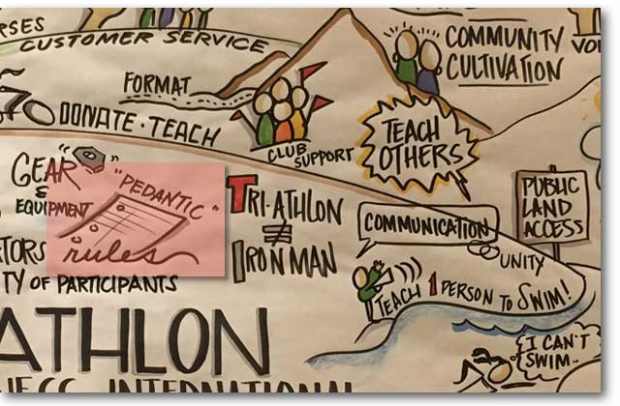 CUSTOMER SERVICE
COMMUNITY
CULTIVATION
FORMAT
DONATE · TEACH
CLUB
SUPPORT
TEACH
OTHERS
GEAR
&
EQUIPMENT
"PEDANTIC"
rules
TRI-ATHLON
≠
IRON MAN
COMMUNICATION
PUBLIC
LAND
ACCESS
UNITY
TEACH 1 PERSON TO SWIM!
OF PARTICIPANTS
ATHLON
INTERNATIONAL
I CAN'T
SWIM..